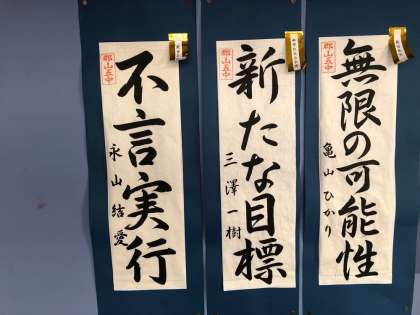 無限の可能性
亀山ひかり
郡山五中
新たな目標
三澤一樹
郡山五中
不言実行
永山結愛
郡山五中